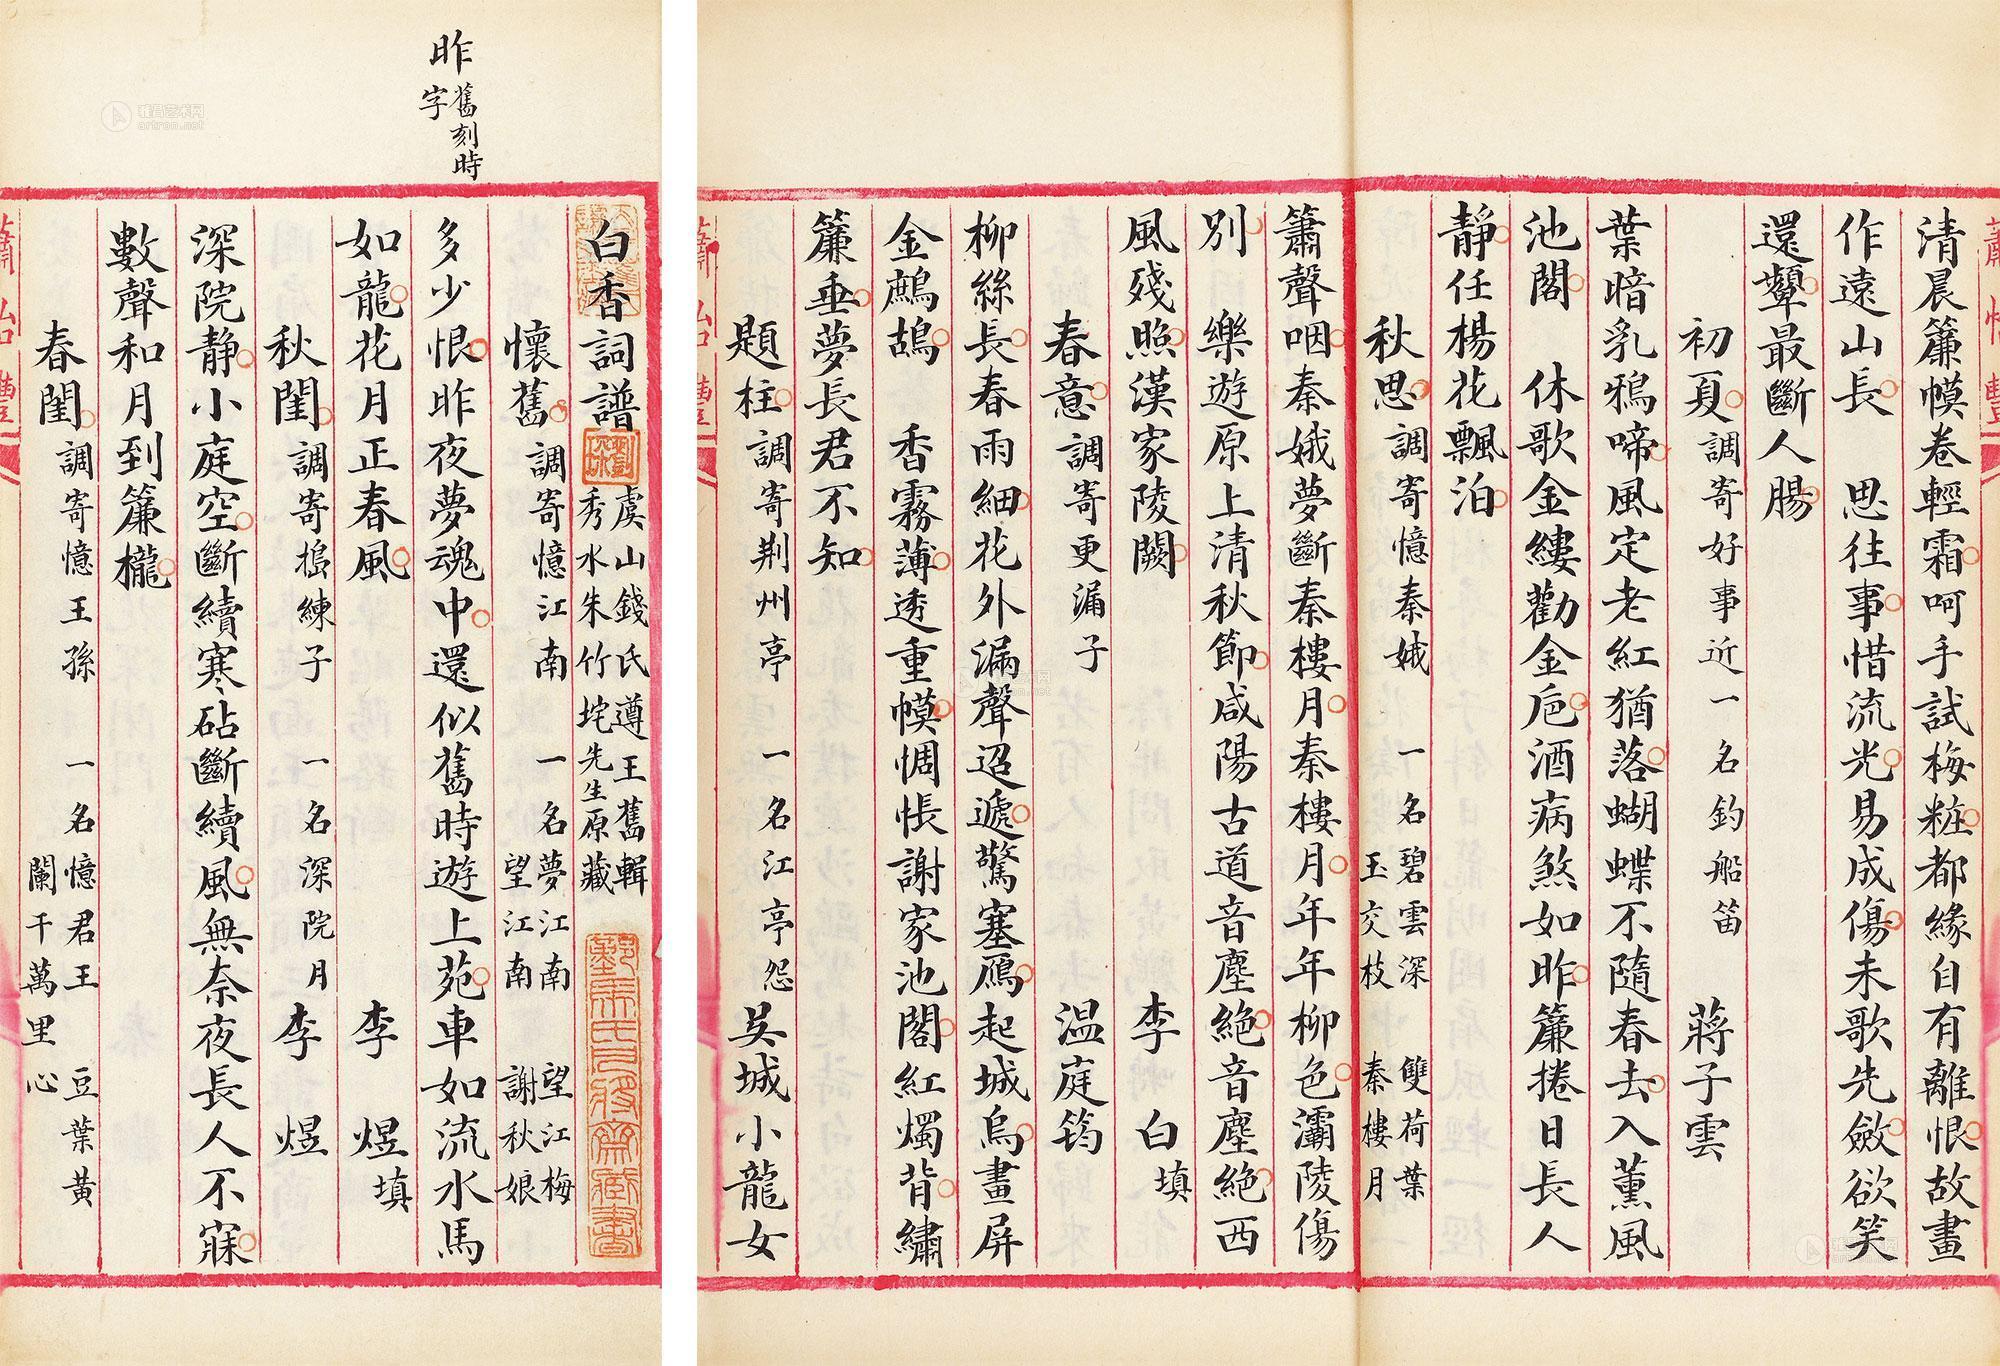 清晨簾幙卷輕霜呵手試梅粧都緣自有離恨故畫
作遠山長　思往事惜流光易成傷未歌先斂欲笑
還顰最斷人腸
初夏 調寄好事近 一名釣船笛 蔣子雲
葉暗乳鴉啼風定老紅猶落蝴蝶不隨春去入薰風
池閣　休歌金縷勸金卮酒病煞如昨簾捲日長人
靜任楊花飄泊
秋思 調寄憶秦娥 一名碧雲深 雙荷葉
玉交枝 秦樓月
簫聲咽秦娥夢斷秦樓月秦樓月年年柳色灞陵傷
別　樂遊原上清秋節咸陽古道音塵絕音塵絕西
風殘照漢家陵闕　李白填
春意 調寄更漏子 温庭筠
柳絲長春雨細花外漏聲迢遞驚塞鴈起城烏畫屏
金鷓鴣　香霧薄透重幙惆悵謝家池閣紅燭背繡
簾垂夢長君不知
題柱 調寄荆州亭 一名江亭怨 吳城小龍女
昨 舊刻時
字
白香詞譜 虞山錢氏遵王舊輯
秀水朱竹垞先生原藏
懷舊 調寄憶江南 一名夢江南 望江梅
望江南 謝秋娘
多少恨昨夜夢魂中還似舊時遊上苑車如流水馬
如龍花月正春風　李煜填
秋閨 調寄搗練子 一名深院月 李煜
深院靜小庭空斷續寒砧斷續風無奈夜長人不寐
數聲和月到簾櫳
春閨 調寄憶王孫 一名憶君王 豆葉黃
闌干萬里心
雅昌艺术网
artron.net